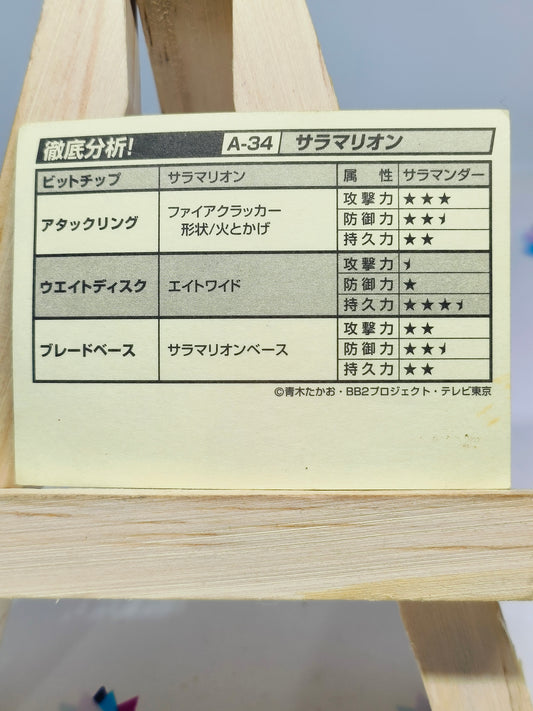 徹底分析! A-34 サラマリオン
ビットチップ サラマリオン 属 性 サラマンダー
アタックリング ファイアクラッカー 形状/火とかげ 攻撃力 ★★★
防御力 ★★⯨
持久力 ★★
ウエイトディスク エイトワイド 攻撃力 ⯨
防御力 ★
持久力 ★★★⯨
ブレードベース サラマリオンベース 攻撃力 ★★
防御力 ★★⯨
持久力 ★★
©青木たかお・BB2プロジェクト・テレビ東京